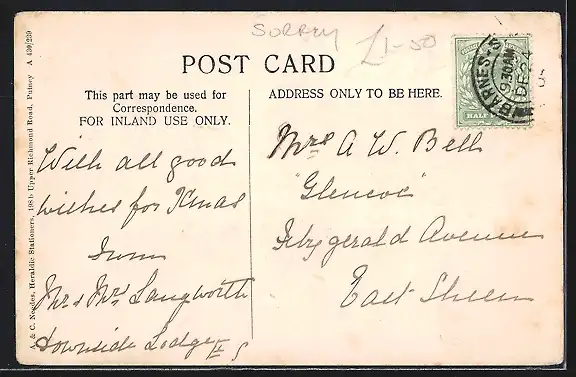 SURREY
£1-50
POST CARD
This part may be used for
Correspondence.
FOR INLAND USE ONLY.
ADDRESS ONLY TO BE HERE.
BARNES. S
9 30 AM
DE
5
HALF
A & C. Neales, Heraldic Stationers, 198b Upper Richmond Road, Putney A 430/239
With all good
wishes for Xmas
from
Mr & Mrs Langworth
Downside Lodge E S
Mrs A W. Bell
"Glencoe"
Fitzgerald Avenue
East Sheen